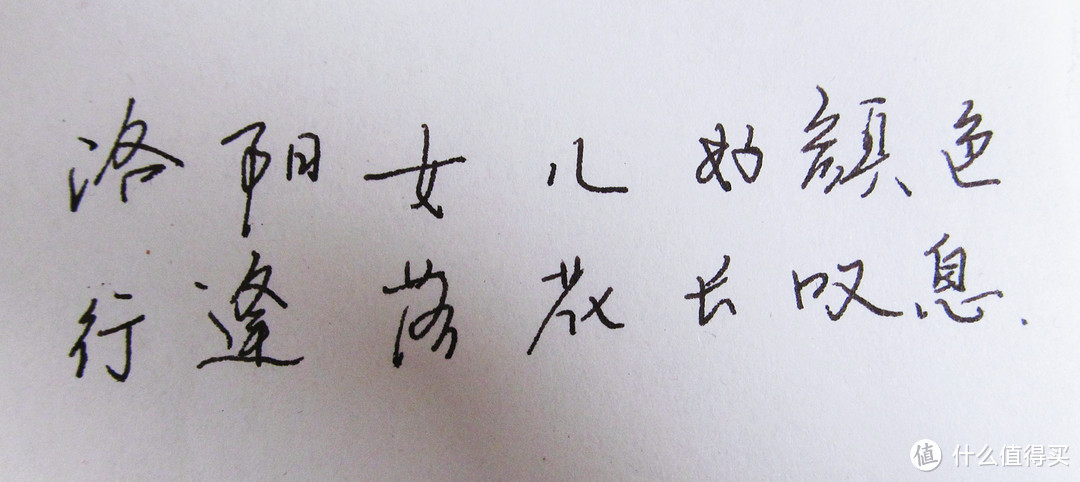 洛阳女儿好顔色
行逢落花长叹息.
值 什么值得买